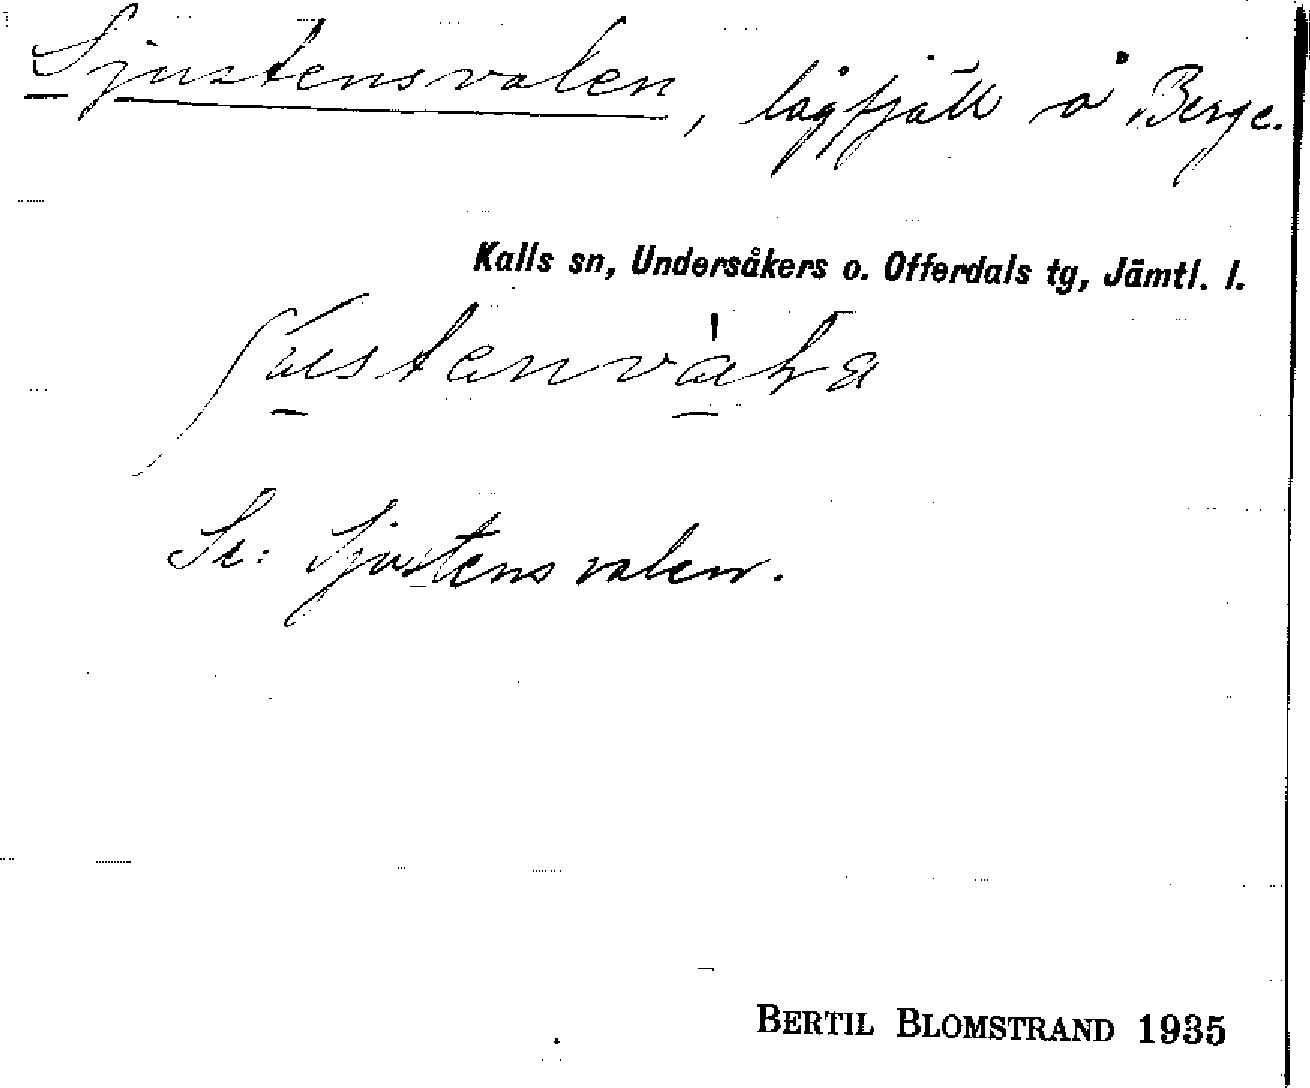 Sjustensvalen, lågfjäll å Berge.
Kalls sn, Undersåkers o. Offerdals tg, Jämtl. l.
Sc: Sjustensvalen.
BERTIL BLOMSTRAND 1935